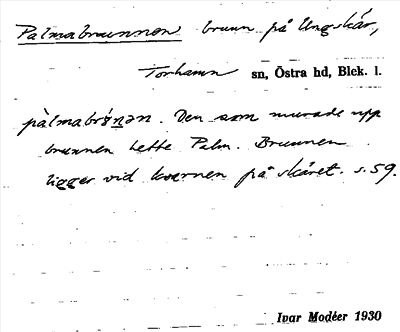 Palmabrunnen brunn på Ungskär,
Torhamn sn, Östra hd, Blek. l.
pàlmabrɤ́nən. Den som murade upp
brunnen hette Palm. Brunnen
ligger vid kvarnen på skäret. s. 59.
Ivar Modéer 1930